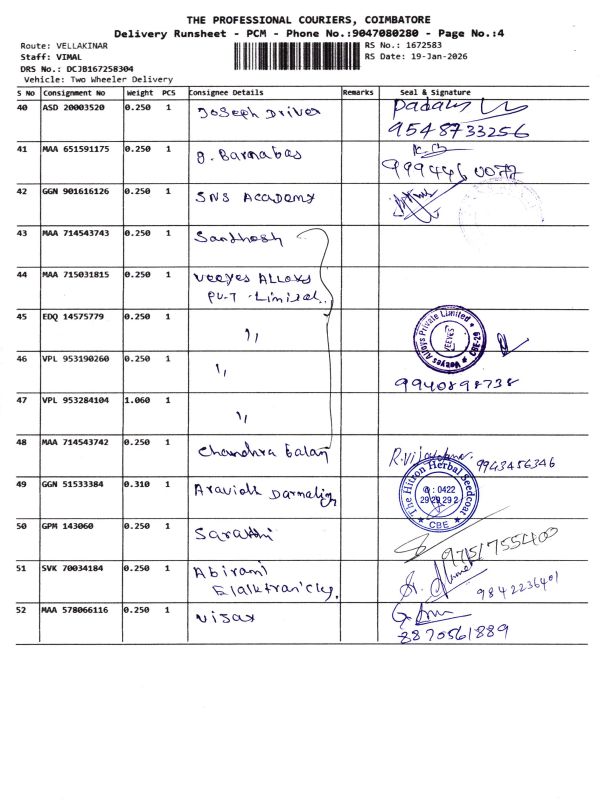 THE PROFESSIONAL COURIERS, COIMBATORE
Delivery Runsheet - PCM - Phone No.:9047080280 - Page No.:4
Route: VELLAKINAR
RS No.: 1672583
Staff: VIMAL
RS Date: 19-Jan-2026
DRS No.: DCJB167258304
Vehicle: Two Wheeler Delivery
S No Consignment No Weight PCS Consignee Details Remarks Seal & Signature
40 ASD 20003520 0.250 1 Joseph Driver
9548733256
41 MAA 651591175 0.250 1 g. Barnabas
9994460077
42 GGN 901616126 0.250 1 SNS Academy
43 MAA 714543743 0.250 1 Santhosh
44 MAA 715031815 0.250 1 Veeyes Alloys
Pv.T Limited
45 EDQ 14575779 0.250 1 ,,
Veeyes Alloys Private Limited
VEEYES
CBE-29
46 VPL 953190260 0.250 1 ,,
9940898738
47 VPL 953284104 1.060 1 ,,
48 MAA 714543742 0.250 1 Chandhra Balan
9943456346
49 GGN 51533384 0.310 1 Aravioh
The Hitron Herbal Seedcoat
: 0422
29 29 29 2
CBE
50 GPM 143060 0.250 1 Sarathi
9751755400
51 SVK 70034184 0.250 1 Abirami
9842236401
52 MAA 578066116 0.250 1 Vijay
8870561889